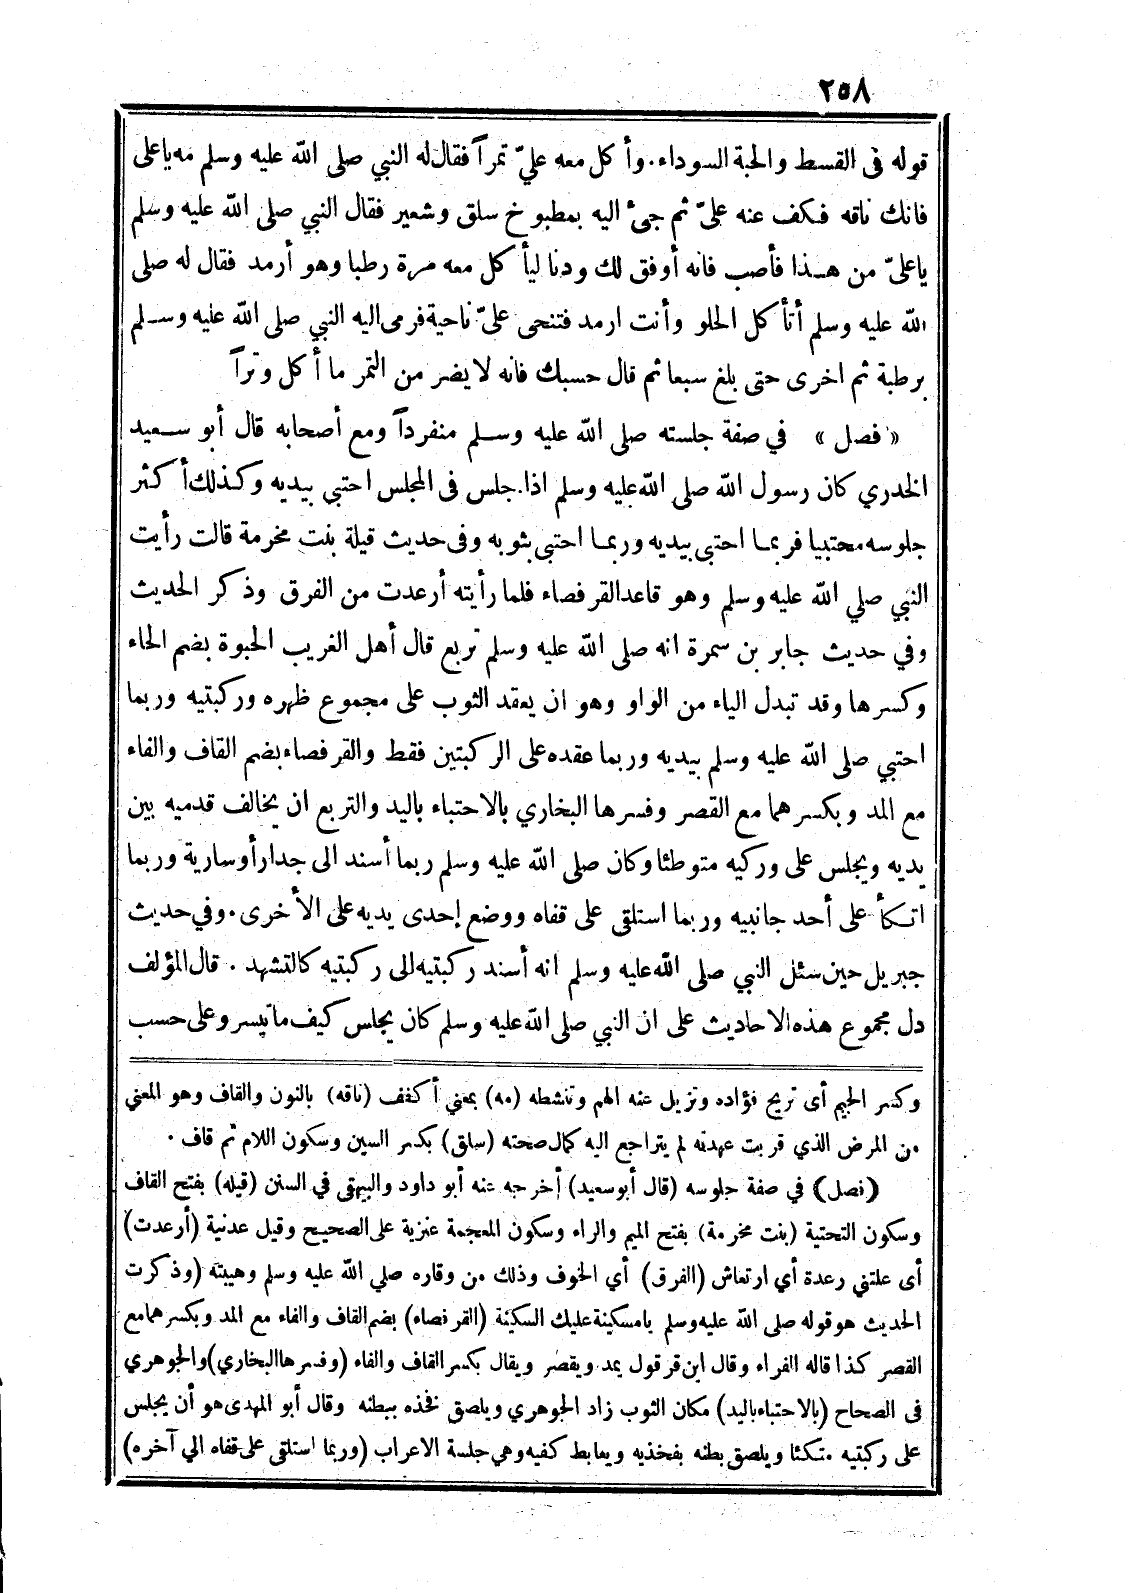 ٢٥٨
قوله فى القسط والحبة السوداء . وأكل معه عليّ تمراً فقال له النبي صلى الله عليه وسلم مه ياعلى
فانك ناقه فكف عنه علىّ ثم جىء اليه بمطبوخ سلق وشعير فقال النبي صلى الله عليه وسلم
ياعلىّ من هــذا فأصب فانه أوفق لك ودنا ليأكل معه مرة رطبا وهو أرمد فقال له صلى
الله عليه وسلم أتأكل الحلو وأنت ارمد فتنحى علىّ ناحية فرمى اليه النبي صلى الله عليه وســلم
برطبة ثم اخرى حتى بلغ سبعا ثم قال حسبك فانه لايضر من التمر ما أكل وتراً
« فصل » في صفة جلسته صلى الله عليه وســلم منفرداً ومع أصحابه قال أبو ســعيد
الخدري كان رسول الله صلى الله عليه وسلم اذا جلس فى المجلس احتبي بيديه وكــذلك أكثر
جلوسه محتبيا فربمــا احتبى بيديه وربمــا احتبى بثوبه وفى حديث قيلة بنت مخرمة قالت رأيت
النبي صلي الله عليه وسلم وهو قاعد القرفصاء فلما رأيته أرعدت من الفرق وذكر الحديث
وفي حديث جابر بن سمرة انه صلى الله عليه وسلم تربع قال أهل الغريب الحبوة بضم الحاء
وكسرها وقد تبدل الياء من الواو وهو ان يعقد الثوب على مجموع ظهره وركبتيه وربما
احتبي صلى الله عليه وسلم بيديه وربما عقده على الركبتين فقط والقرفصاء بضم القاف والفاء
مع المد وبكسرهما مع القصر وفسرها البخاري بالاحتباء باليد والتربع ان يخالف قدميه بين
يديه ويجلس على وركيه متوطئا وكان صلى الله عليه وسلم ربما أسند الى جدار أو سارية وربما
اتــكأ على أحد جانبيه وربما استلقى على قفاه ووضع إحدى يديه على الأخرى . وفي حديث
جبريل حين سئل النبي صلى الله عليه وسلم انه أسند ركبتيه الى ركبتيه كالتشهد . قال المؤلف
دل مجموع هذه الاحاديث على ان النبي صلى الله عليه وسلم كان يجلس كيف ما تيسر وعلى حسب
وكسر الجيم أى تريح فؤاده وتزيل عنه الهم وتنشطه (مه) بمعني أكفف (ناقه) بالنون والقاف وهو المعني
من المرض الذي قربت عهدته لم يتراجع اليه كمال صحته (سلق) بكسر السين وسكون اللام ثم قاف .
(فصل) في صفة جلوسه (قال أبو سعيد) أخرجه عنه أبو داود والبيهقى في السنن (قيله) بفتح القاف
وسكون التحتية (بنت مخرمة) بفتح الميم والراء وسكون المعجمة عنزية على الصحيح وقيل عدنية (أرعدت)
أى علتني رعدة أي ارتعاش (الفرق) أي الخوف وذلك من وقاره صلي الله عليه وسلم وهيبته (وذكرت
الحديث هو قوله صلى الله عليه وسلم يا مسكينة عليك السكينة (القرفصاء) بضم القاف والفاء مع المد وبكسرهما مع
القصر كذا قاله الفراء وقال ابن قرقول يمد ويقصر ويقال بكسر القاف والفاء (وفسرها البخاري) والجوهري
فى الصحاح (بالاحتباء باليد) مكان الثوب زاد الجوهري ويلصق فخذه ببطنه وقال أبو المهدى هو أن يجلس
على ركبتيه متكئا ويلصق بطنه بفخذيه ويعابط كفيه وهي جلسة الاعراب (وربما استلقى على قفاه الي آخره)